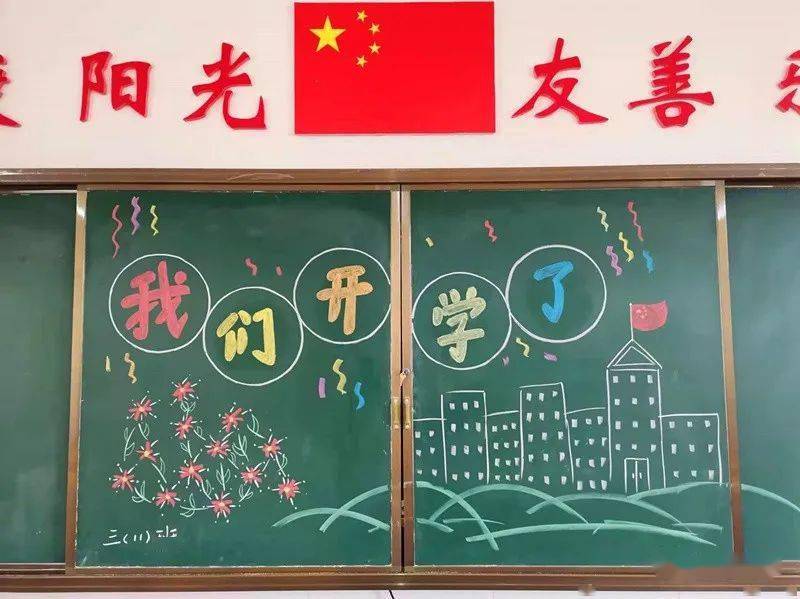 阳光 友善
我们开学了
三(11)班